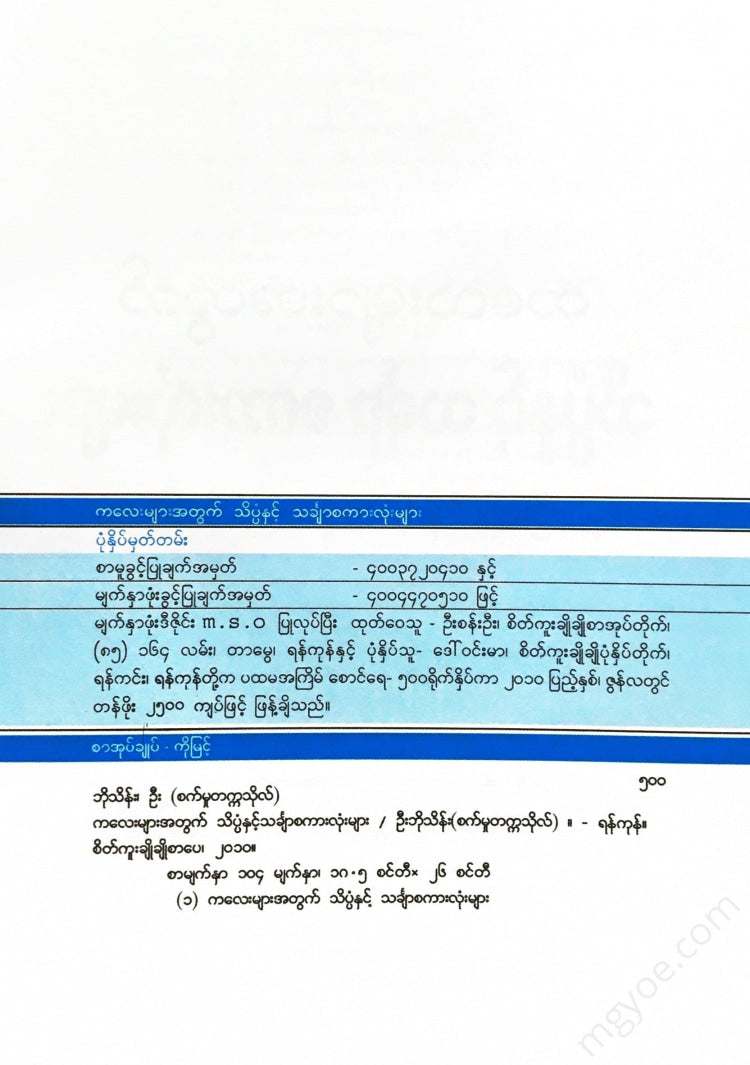 ကလေးများအတွက် သိပ္ပံနှင့် သင်္ချာစကားလုံးများ
ပုံနှိပ်မှတ်တမ်း
စာမူခွင့်ပြုချက်အမှတ် - ၄၀၀၃၇၂၀၄၁၀ နှင့်
မျက်နှာဖုံးခွင့်ပြုချက်အမှတ် - ၄၀၀၄၄၇၀၅၁၀ ဖြင့်
မျက်နှာဖုံးဒီဇိုင်း m.s.o ပြုလုပ်ပြီး ထုတ်ဝေသူ - ဦးစန်းဦး၊ စိတ်ကူးချိုချိုစာအုပ်တိုက်၊
(၈၅) ၁၆၄ လမ်း၊ တာမွေ၊ ရန်ကုန်နှင့် ပုံနှိပ်သူ- ဒေါ်ဝင်းမာ၊ စိတ်ကူးချိုချိုပုံနှိပ်တိုက်၊
ရန်ကင်း၊ ရန်ကုန်တို့က ပထမအကြိမ် စောင်ရေ- ၅၀၀ရိုက်နှိပ်ကာ ၂၀၁၀ ပြည့်နှစ်၊ ဇွန်လတွင်
တန်ဖိုး ၂၅၀၀ ကျပ်ဖြင့် ဖြန့်ချိသည်။
စာအုပ်ချုပ် - ကိုမြင့်
၅၀၀
ဘိုသိန်း၊ ဦး (စက်မှုတက္ကသိုလ်)
ကလေးများအတွက် သိပ္ပံနှင့်သင်္ချာစကားလုံးများ / ဦးဘိုသိန်း(စက်မှုတက္ကသိုလ်) ။ - ရန်ကုန်။
စိတ်ကူးချိုချိုစာပေ၊ ၂၀၁၀။
စာမျက်နှာ ၁၀၄ မျက်နှာ၊ ၁၈.၅ စင်တီ× ၂၆ စင်တီ
(၁) ကလေးများအတွက် သိပ္ပံနှင့် သင်္ချာစကားလုံးများ
mgyoe.com